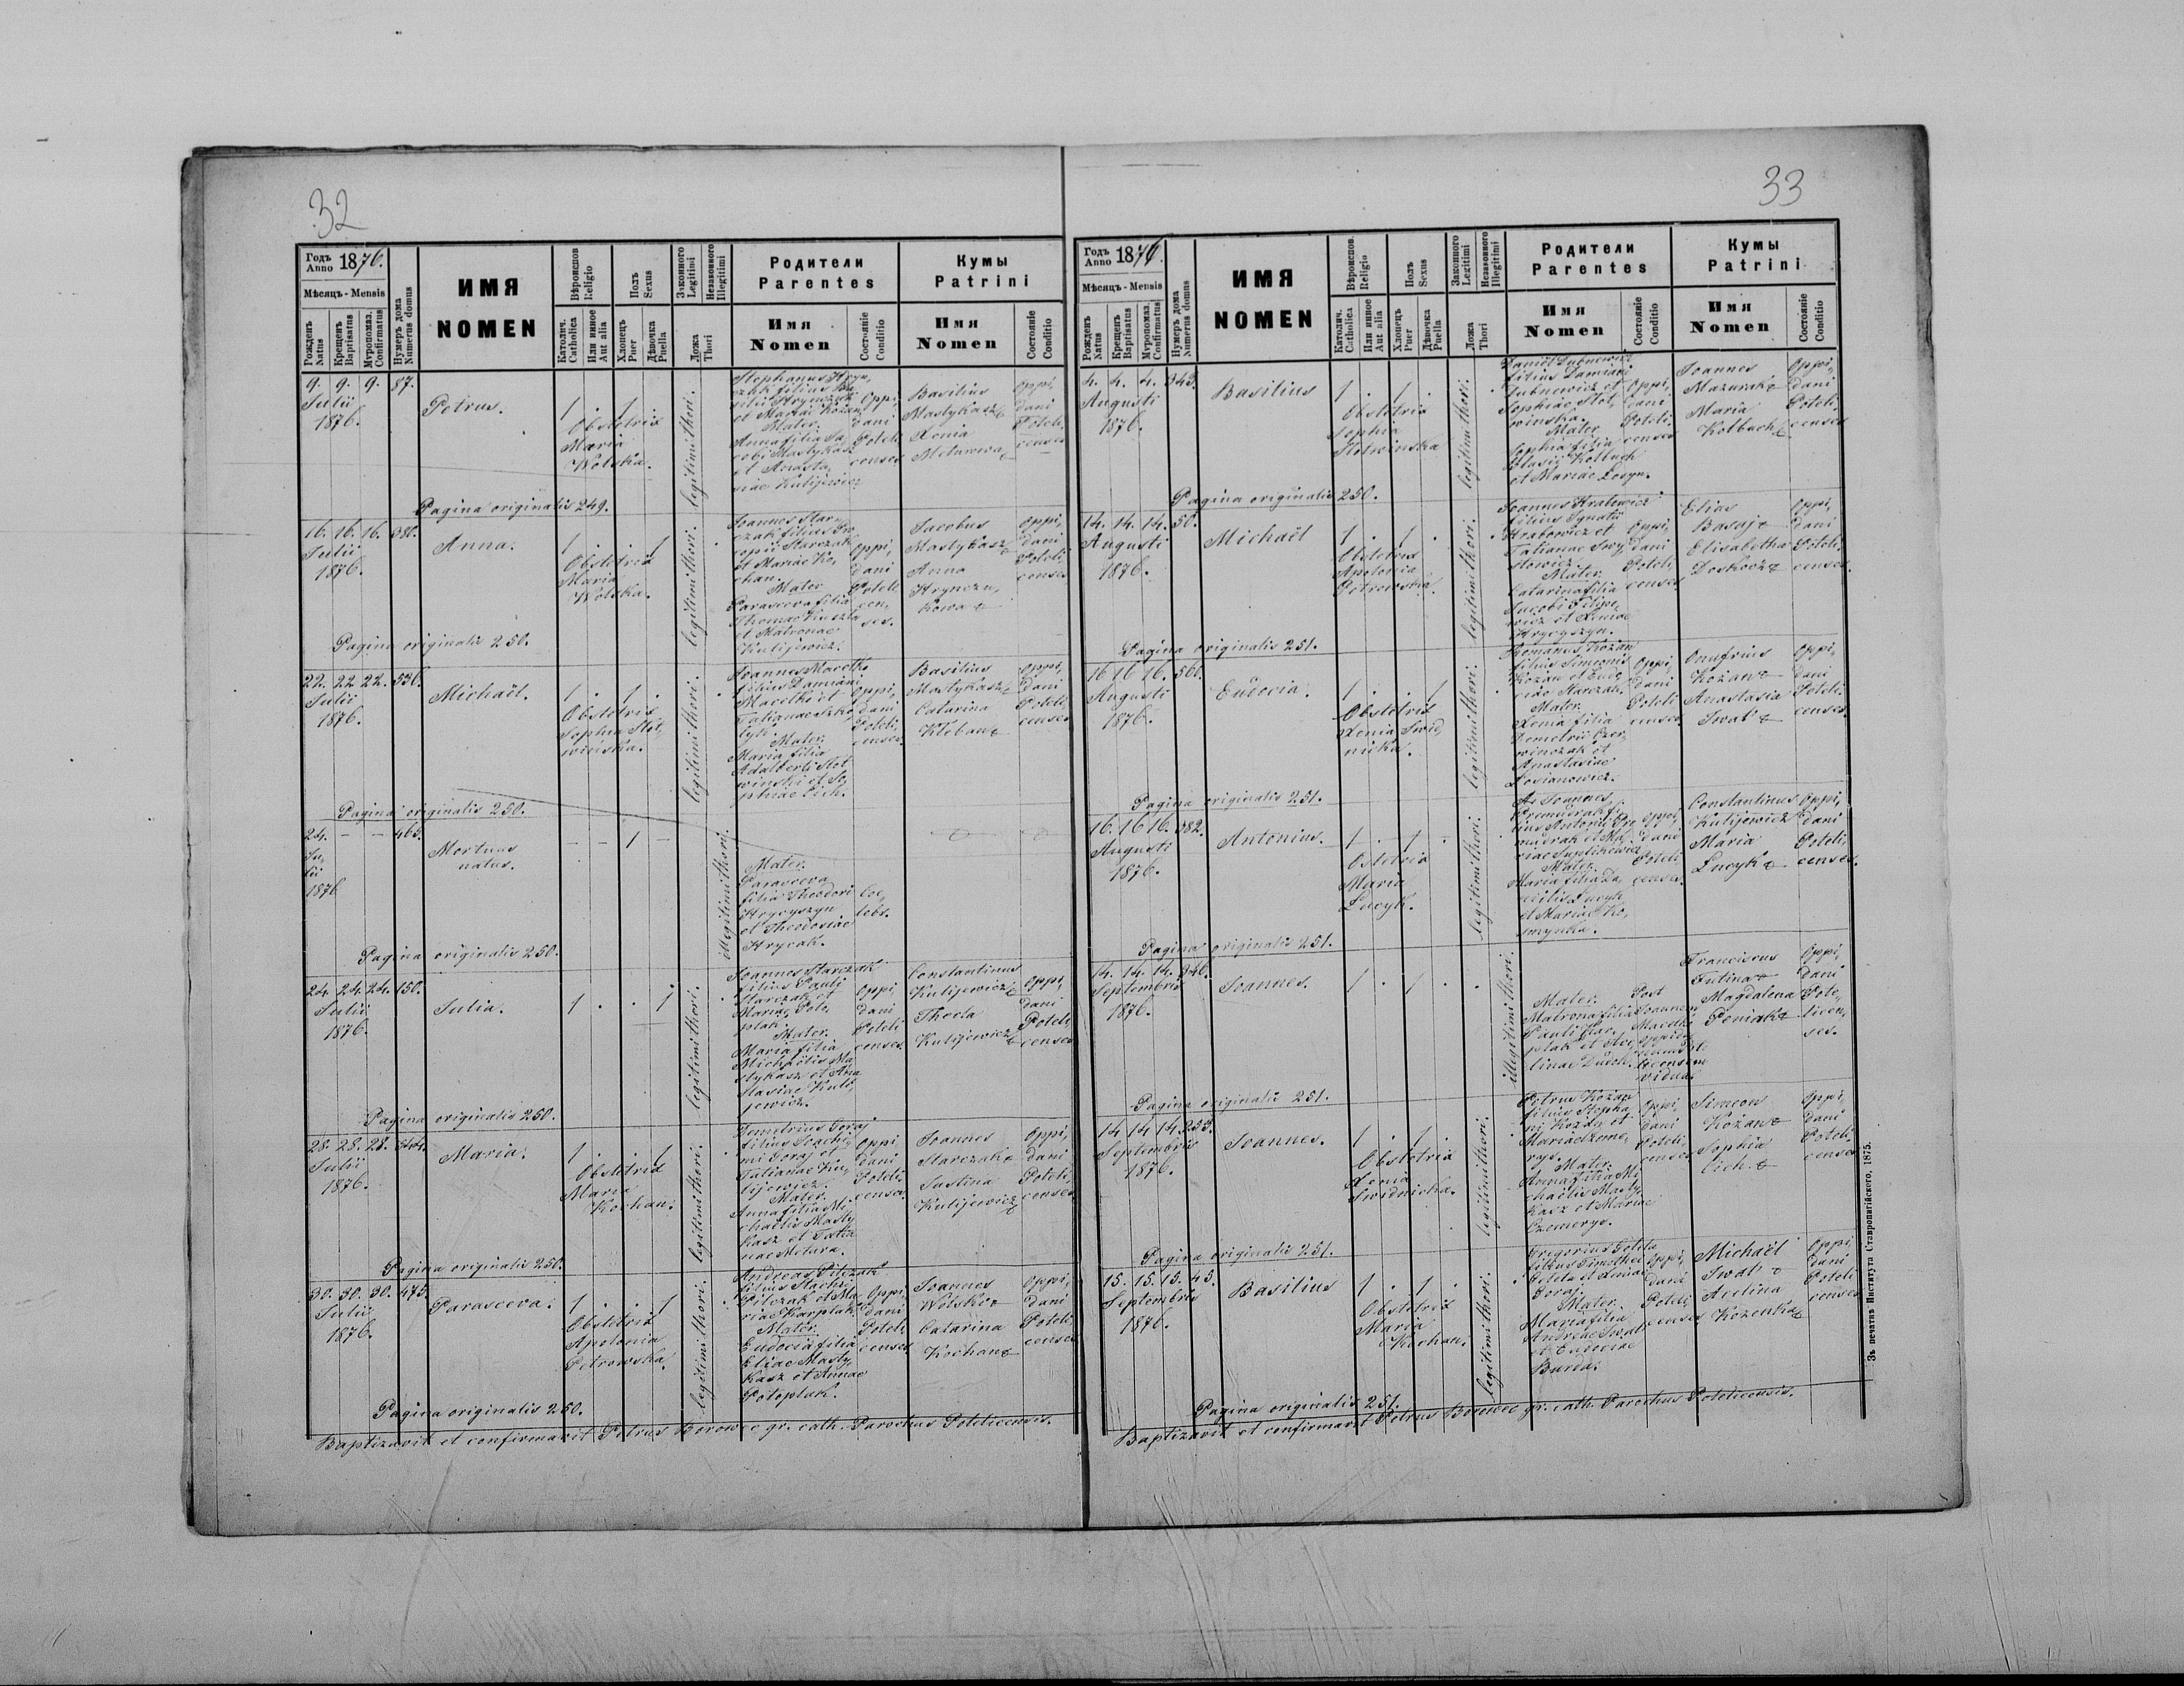 32
Годъ Anno 1876.
Мѣсяцъ - Mensis
Рожденъ Natus
Крещенъ Baptisatus
Мѵропомаз. Confirmatus
Нумеръ дома Numerus domus
ИМЯ
NOMEN
Вѣроиспов Religio
Католич. Catholica
Или инное Aut alia
Полъ Sexus
Хлопецъ Puer
Дѣвочка Puella
Законного Legitimi
Незаконного Illegitimi
Ложа Thori
Родители
Parentes
Имя
Nomen
Состояніе Conditio
Кумы
Patrini
Имя
Nomen
Состояніе Conditio
9. 9. 9. 87.
Julii
1876.
Petrus.
1 . 1 .
Obstetrix
Maria
Wolska.
legitimi thori.
Stephanus Hryn,
czak filius Ba
silii Hrynczak
et Mariae Kozan
Mater.
Anna filia Ja
cobi Mastykasz
et Anasta,
siae Kulijewicz
Oppi,
dani
Poteli
censes
Basilius
Mastykasz
Xenia
Metarowa
Oppi,
dani
Poteli,
censes
Pagina originalis 249.
16. 16. 16. 380.
Julii
1876.
Anna.
1 . . 1
Obstetrix
Maria
Wolska.
legitimi thori.
Joannes Star,
czak filius Pro
copii Starczak
et Mariae Ko,
chan.
Mater
Parasceva filia
Thomae Kuszla
et Matronae
Kulijewicz.
Oppi,
dani
Poteli
cen,
ses.
Jacobus
Mastykasz
Anna
Hrynczu,
kowa
Oppi,
dani
Poteli,
censes
Pagina originalis 250.
22. 22. 22. 536.
Julii
1876.
Michaël.
1 . 1 .
Obstetrix
Sophia Slot,
winska.
legitimi thori.
Joannes Macelko
filius Damiani
Macelko et
Tatianae Szko,
lyk.
Mater.
Maria filia
Adalberti Slot
winski et So,
phiae Cich.
Oppi,
dani
Poteli,
censes.
Basilius
Mastykasz
Catarina
Kleban
Oppi,
dani
Poteli,
censes
Pagina originalis 250.
24. - - 465.
Ju,
lii
1876
Mortuus
natus.
- - 1 -
illegitimi thori.
Mater.
Parasceva
filia Theodori
Hrycyszyn
et Theodosiae
Hrycak.
Coe,
lebs.
Pagina originalis 250.
24. 24. 24. 150.
Julii
1876.
Julia.
1 . . 1
legitimi thori.
Joannes Starczak
filius Pauli
Starczak et
Mariae Poto,
plak.
Mater.
Maria filia
Michaëlis Ma
stykasz et Ana
stasiae Kuli
jewicz.
Oppi,
dani
Poteli
censes.
Constantinus
Kulijewicz
Thecla
Kulijewicz
Oppi,
dani
Poteli,
censes
Pagina originalis 250.
28. 28. 28. 344.
Julii
1876.
Maria.
1 . . 1
Obstetrix
Maria
Kochan.
legitimi thori.
Demetrius Goraj
filius Joachi,
mi Goraj et
Tatianae Ku,
lijewicz.
Mater.
Anna filia Mi,
chaëlis Masty
kasz et Tatia
nae Metara.
Oppi,
dani
Poteli,
censes.
Joannes
Starczak
Justina
Kulijewicz
Oppi,
dani
Poteli,
censes.
Pagina originalis 250.
30. 30. 30. 475.
Julii
1876.
Parasceva.
1 . . 1
Obstetrix
Apolonia
Petrowska.
legitimi thori.
Andreas Pilczak
filius Stachii
Pilczak et Ma,
riae Karplak.
Mater.
Eudocia filia
Eliae Masty,
kasz et Annae
Potoplak.
Oppi,
dani
Poteli,
censes.
Joannes
Wolsko
Catarina
Kochan
Oppi,
dani
Poteli,
censes
Pagina originalis 250.
Baptizavit et confirmavit Petrus Borowec gr. cath. Parochus Potelicensis.
33
Годъ Anno 1876.
Мѣсяцъ - Mensis
Рожденъ Natus
Крещенъ Baptisatus
Мѵропомаз. Confirmatus
Нумеръ дома Numerus domus
ИМЯ
NOMEN
Вѣроиспов. Religio
Католич. Catholica
Или инное Aut alia
Полъ Sexus
Хлопецъ Puer
Дѣвочка Puella
Законного Legitimi
Незаконного Illegitimi
Ложа Thori
Родители
Parentes
Имя
Nomen
Состояніе Conditio
Кумы
Patrini
Имя
Nomen
Состояніе Conditio
4. 4. 4. 343.
Augusti
1876.
Basilius
1 . 1 .
Obstetrix
Sophia
Slotwinska
legitimi thori.
Daniël Dubnewicz
filius Damiani
Dubnewicz et
Sophiae Slot,
winska.
Mater
Sophia filia
Blasii Kolbuch
et Mariae Losyn.
Oppi,
dani
Poteli,
censes
Joannes
Mazurak
Maria
Kolbuch
Oppi,
dani
Poteli,
censes
Pagina originalis 250.
14. 14. 14. 50.
Augusti
1876.
Michaël
1 . 1 .
Obstetrix
Apolonia
Petrowska.
legitimi thori.
Joannes Hratowicz
filius Ignatii
Hrabowicz et
Tatianae Swy,
stowicz.
Mater.
Catarina filia
Jacobi Filipo,
wicz et Xeniae
Hrycyszyn.
Oppi,
dani
Poteli,
censes
Elias
Basaj
Elisabetha
Doskocz
Oppi,
dani
Poteli,
censes.
Pagina originalis 251.
16 16 16. 560.
Augusti
1876.
Eudocia.
1 . . 1
Obstetrix
Xenia Swid,
nicka.
legitimi thori.
Romanus Kozan
filius Simeonis
Kozan et Eudo
ciae Starczak.
Mater.
Xenia filia
Demetrii Czer,
winczak et
Anastasiae
Losianowicz.
Oppi,
dani
Poteli
censes
Onufrius
Kozan
Anastasia
Swat
Oppi,
dani
Poteli.
censes.
Pagina originalis 251.
16. 16 16. 382.
Augusti
1876.
Antonius.
1 . 1 .
Ostetrix
Maria
Lucyk.
legitimi thori.
Joannes
Premudrak fi,
lius Antonii Pre
mudrak et Ma,
riae Suplikewicz
Mater.
Maria filia Da,
nielis Lucyk
et Mariae Ko,
smynka.
Oppi,
dani
Poteli,
censes.
Constantinus
Kulijewicz
Maria
Lucyk
Oppi,
dani
Poteli,
censes.
Pagina originalis 251.
14. 14. 14. 346.
Septembris
1876.
Joannes.
1 . 1 .
illegitimi thori.
Mater.
Matrona filia
Pauli Kar,
plak et Ave,
linae Dutch.
Post
Joannem
Macelko
oppida
num Po
telicensem
vidua.
Franciscus
Futina
Magdalena
Peniak
Oppi,
dani
Pote,
licen,
ses.
Pagina originalis 251.
14 14 14. 253.
Septembris
1876.
Joannes.
1 . 1 .
Obstetrix
Xenia
Swidnicka.
legitimi thori.
Petrus Kozan
filius Stepha
ni Kozan et
Mariae Czeme,
rys.
Mater.
Anna filia Mi,
chaëlis Masty,
kasz et Mariae
Czemerys.
Oppi,
dani
Poteli,
censes
Simeon
Kozan
Sophia
Cich.
Oppi,
dani
Poteli,
censes
Pagina originalis 251.
15. 15. 15. 45.
Septembris
1876.
Basilius
1 . 1 .
Obstetrix
Maria
Kochan.
legitimi thori.
Gregorius Goleta
filius Timothei
Goleta et Xeniae
Goraj.
Mater.
Maria filia
Andreae Swat
et Eudociae
Burda.
Oppi,
dani
Poteli,
censes
Michaël
Swat
Avelina
Kozenka
Oppi,
dani
Poteli
censes
Pagina originalis 251.
Baptizavit et confirmavit Petrus Borowec gr. cath. Parochus Potelicensis.
Зъ печатнѣ Института Ставропигійского, 1875.